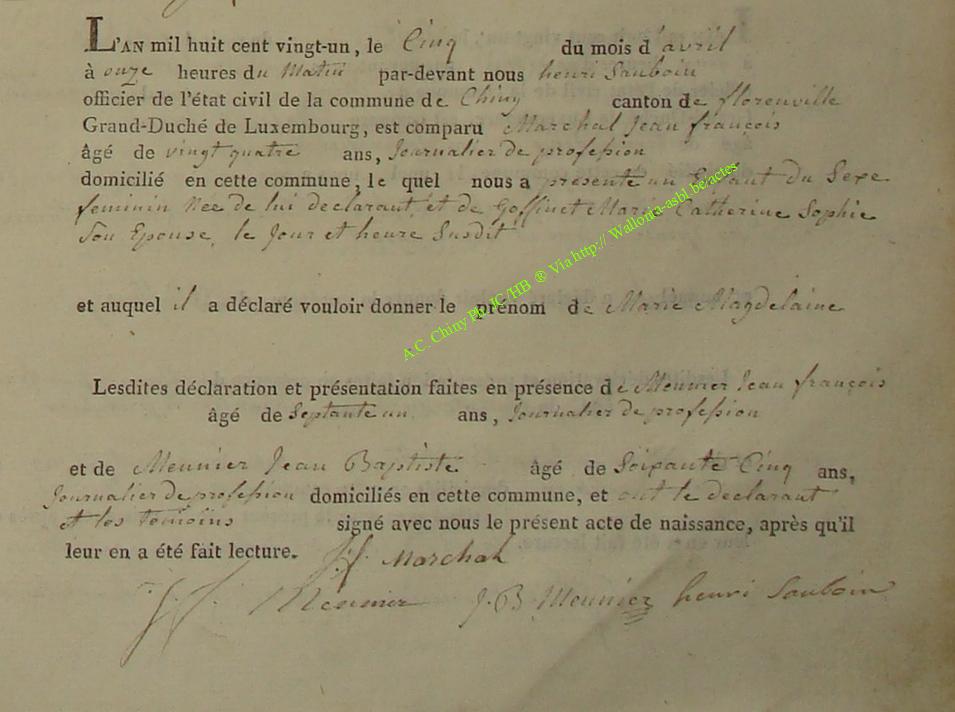 L'AN mil huit cent vingt-un, le Cinq du mois d'avril
à onze heures du Matin par-devant nous henri Sauboin
officier de l'état civil de la commune de Chiny canton de florenville
Grand-Duché de Luxembourg, est comparu Marchal Jean françois
âgé de vingt quatre ans, Journalier de profession
domicilié en cette commune, le quel nous a presenté un Enfant du Sexe
feminin Nee de lui declarant et de Goffinet Marie Catherine Sophie
Son Epouse, le Jour et heure Susdit
et auquel il a déclaré vouloir donner le prénom de Marie Magdelaine
A.C. Chiny PP JC/HB ® Via http:// Wallonia-asbl.be/actes
Lesdites déclaration et présentation faites en présence de Meunier Jean françois
âgé de Septante un ans, Journalier de profession
et de Meunier Jean Baptiste âgé de Soixante Cinq ans,
Journalier de profession domiciliés en cette commune, et ont le declarant
et les temoins signé avec nous le présent acte de naissance, après qu'il
leur en a été fait lecture. J f Marchal
J f Meunier J. B Meunier henri Sauboin